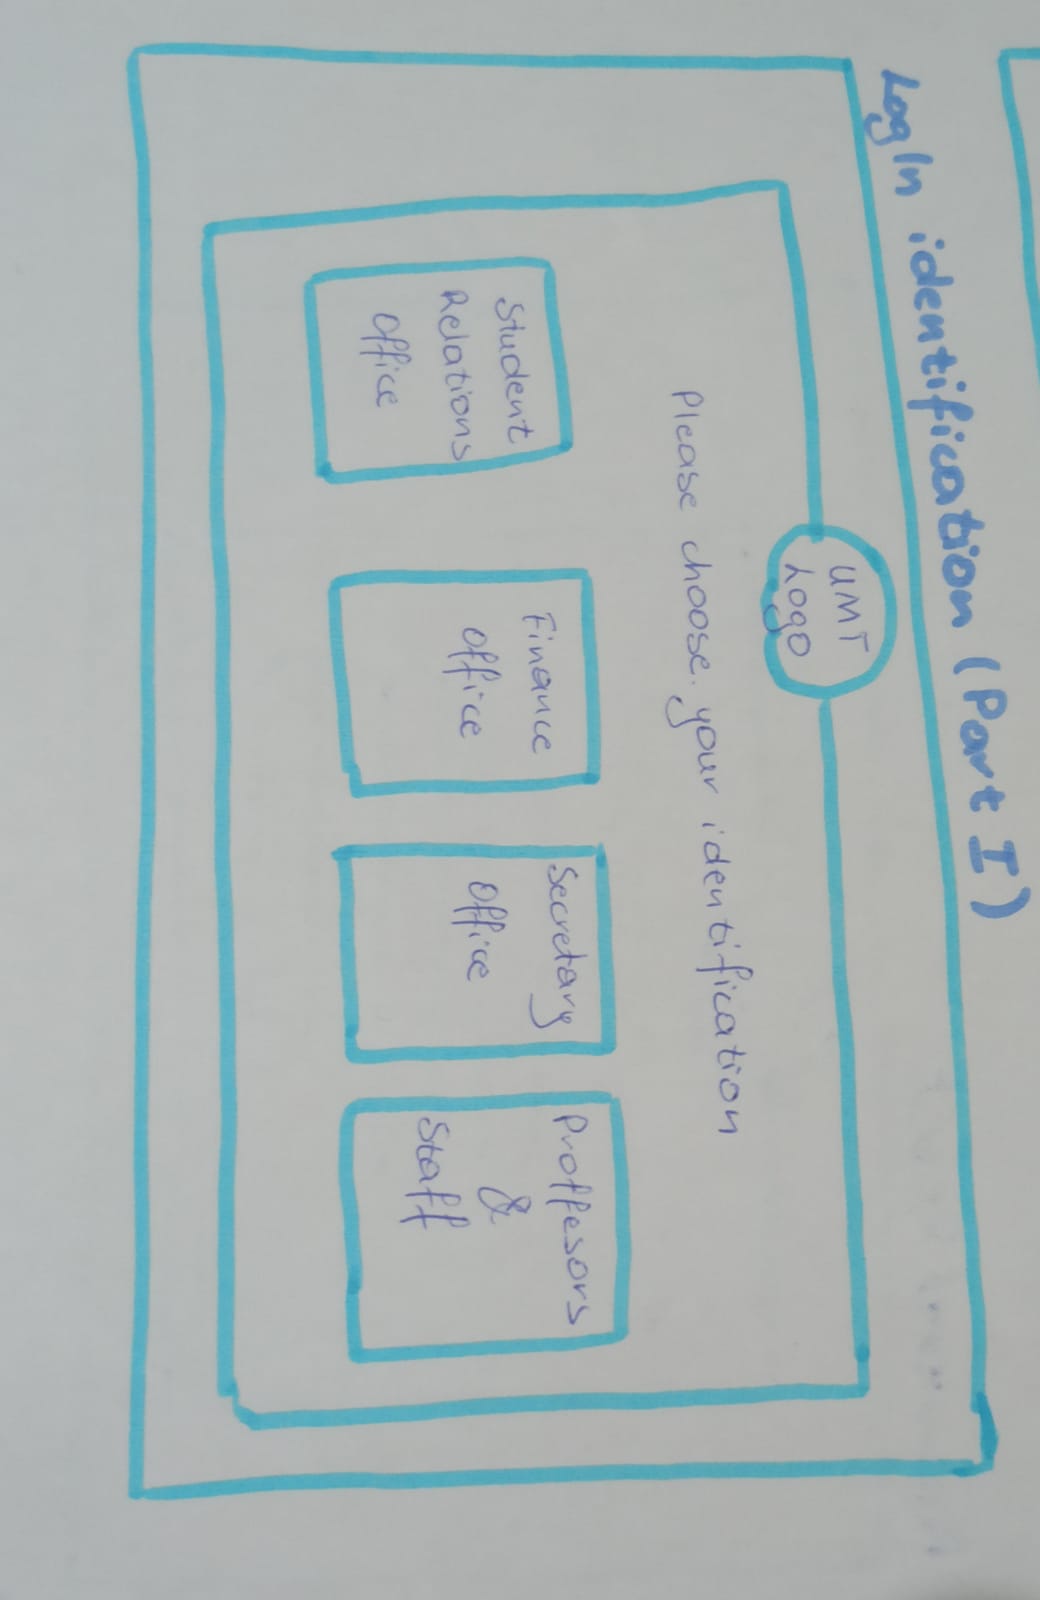 LogIn identification (Part I)
UMT
Logo
Please choose your identification
Student
Relations
Office
Finance
Office
Secretary
Office
Proffesors
&
Staff